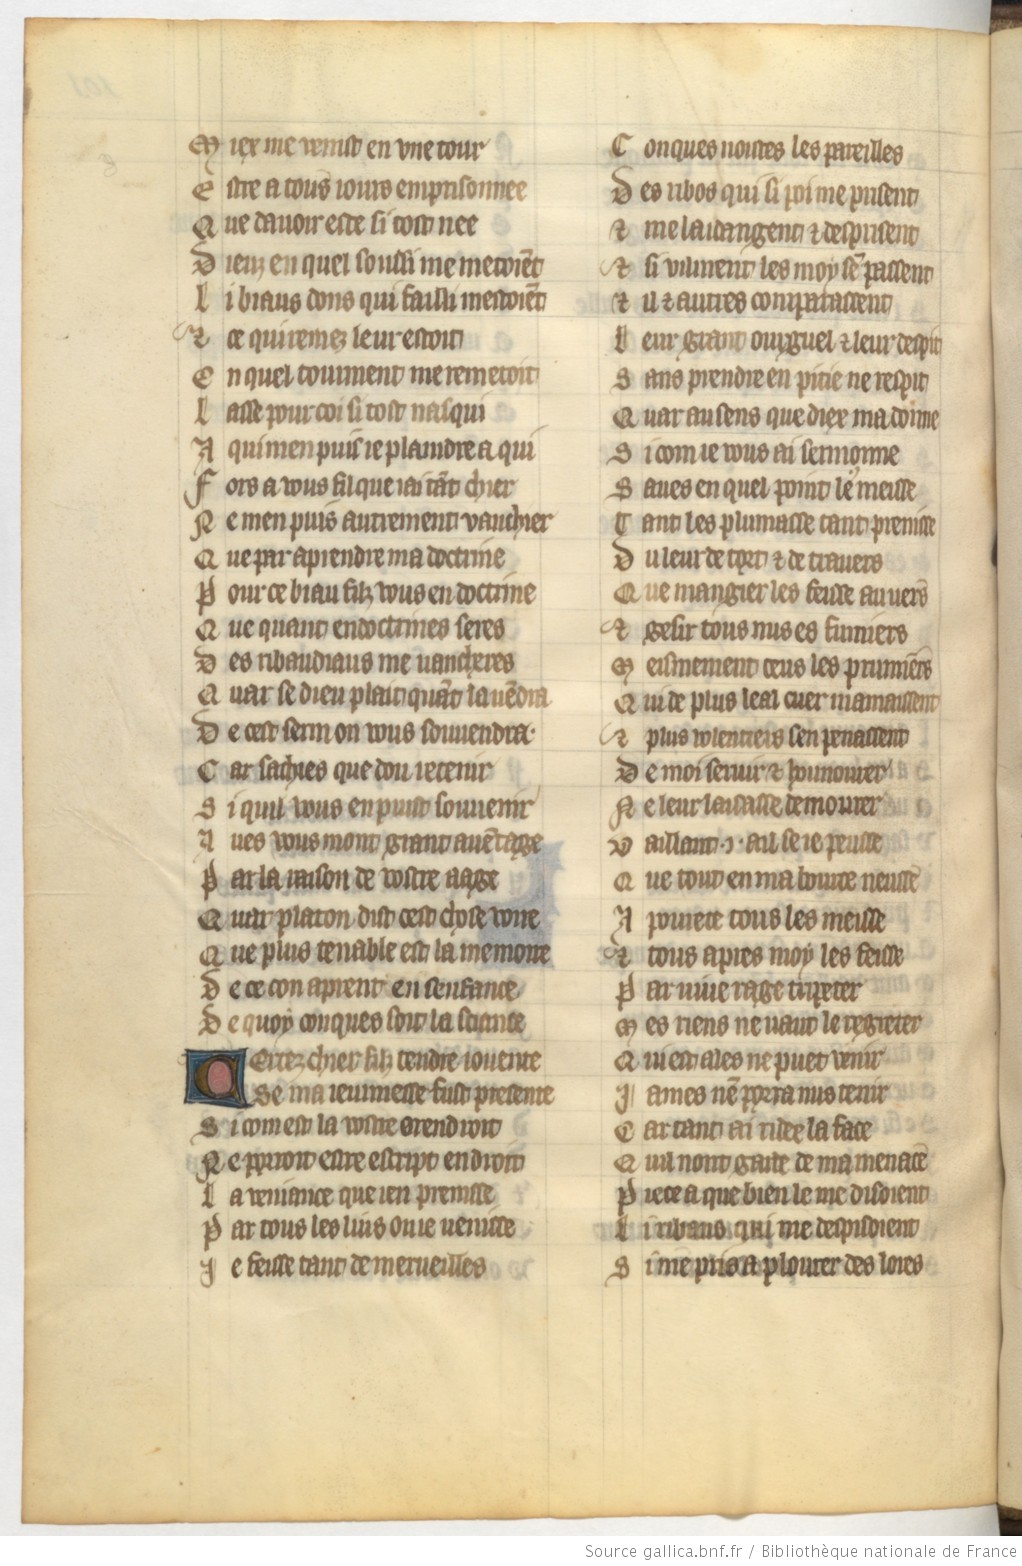 Miex me venist en vne tour
Estre a tous iours emprisonnee
Que dauoir este si tost nee
Diex en quel soussi me metoiẽt
Li biaus dons qui failli mestoiẽt
⁊ ce qui remez leur estoit
En quel tourment me remetoit
Lasse pour coi si tost nasqui
A qui men puis ie plaindre a qui
Fors a vous fil que iai tãt chier
Ne men puis autrement vanchier
Que par aprendre ma doctrine
Pour ce biau filz vous en doctrine
Que quant endoctrines seres
Des ribaudiaus me vancheres
Quar se dieu plait quãt la vẽdra
De cest sermon vous souuendra
Car sachies que dou retenir
Si quil vous en puist souuenir
Aues vous mont grant auẽtage
Par la raison de vostre aage
Quar platon dist cest chose voire
Que plus tenable est la memoire
De ce con aprent en senfance
De quoy conques soit la sciance
Certez chier filz tendre iouente
Se ma ieunnesse fust presente
Si com est la vostre orendroit
Ne porroit estre escript en droit
La veniance que ien preinsse
Par tous les lius ou ie venisse
Ie feisse tant de merueilles
Conques noistes les pareilles
Des ribos qui si poi me prisent
⁊ me laidangent ⁊ desprisent
⁊ si vilment les moy sẽ passent
⁊ il ⁊ autres comparassent
Leur grant ourguel ⁊ leur despit
Sans prendre en pitie ne respit
Quar au sens que diex ma donne
Si com ie vous ai sermonne
Saues en quel point le meisse
Tant les plumasse tant preinsse
Du leur de tort ⁊ de trauers
Que mangier les feisse au vers
⁊ gesir tous nus es fumiers
Meismement ceus les prumiers
Qui de plus leal cuer mamaissent
⁊ plus volentiers sen penassent
De moi seruir ⁊ hounourer
Ne leur laissasse demourer
Vaillant .i. ail se ie peusse
Que tout en ma bource neusse
A pourete tous les meisse
⁊ tous apres moy les feisse
Par viue rage tripeter
Mes riens ne vaut le regreter
Qui est ales ne puet venir
Iames nẽ porra nus tenir
Car tant ai ridee la face
Quil nont garde de ma menace
Piece a que bien le me disoient
Li ribaus qui me despisoient
Si me pris a plourer des lores